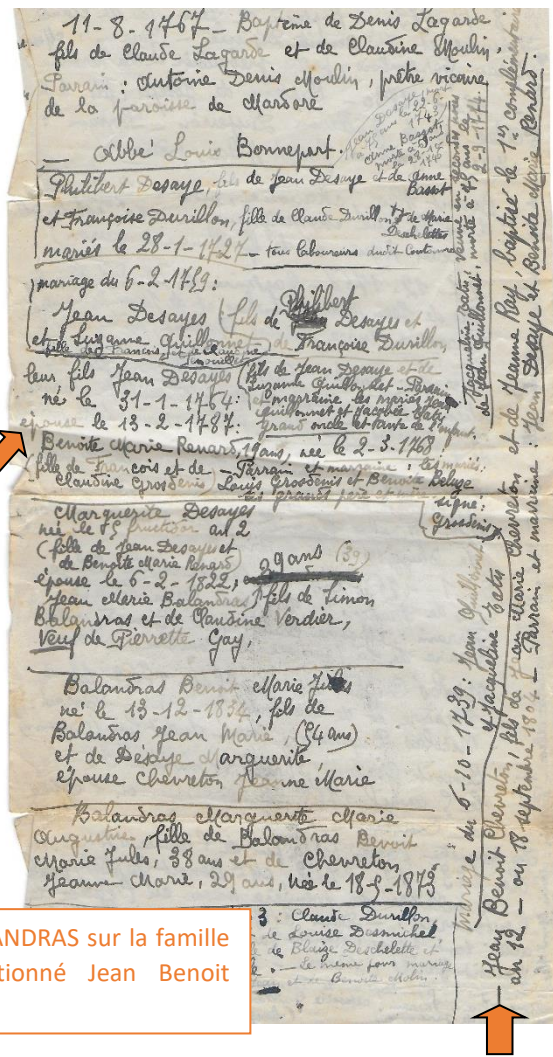 11-8-1767 - Baptême de Denis Lagarde
fils de Claude Lagarde et de Claudine Moulin,
Parrain : Antoine Denis Moulin, prêtre vicaire
de la paroisse de Mardore
- Abbé Louis Bonnepart.
Jean Desaye
Anne Bassot
Philibert Desaye, fils de Jean Desaye et de Anne
Bassot
et Françoise Durillon, fille de Claude Durillon et de Marie
Dechelettes
mariés le 28-1-1727 - tous laboureurs dudit
mariage du 6-2-1759 :
Jean Desayes (fils de Philibert Desayes et
et Suzanne Guillonnet de Françoise Durillon,
fille de François, et de Claudine
leur fils Jean Desayes (fils de Jean Desaye et de
Suzanne Guillonnet - Parrain
né le 31-1-1764. et marraine les mariés Jean
Guillonnet et Jacquée Tatu
épouse le 13-2-1787. grand oncle et tante de l'enfant.
Benoite Marie Renard, 19 ans, née le 2-3-1768
(fille de François et de - Parrain et marraine : les mariés.
Claudine Grosdenis) Louis Grosdenis et Benoite Deluze
les grands père et mère
signé :
Grosdenis
Marguerite Desayes
née le 15 fructidor an 2
(fille de Jean Desayes et
de Benoite Marie Renard)
29 ans (39)
épouse le 6-2-1822,
Jean Marie Balandras, fils de Simon
Balandras et de Claudine Verdier,
Veuf de Pierrette Gay,
Balandras Benoit Marie Jules
né le 13-12-1834, fils de
Balandras Jean Marie, (54 ans)
et de Desaye Marguerite
épouse Chevreton Jeanne Marie
Balandras Marguerite Marie
Augustine, fille de Balandras Benoit
Marie Jules, 38 ans et de Chevreton
Jeanne Marie, 29 ans, née le 18-5-1873
3 : Claude Durillon,
de Louise Desmichel
de Blaise Deschelette et
- Le même pour mariage
et de Benoite Molin.
ANDRAS sur la famille
tionné Jean Benoit
Jacqueline Tatu, veuve en
de Jean Guillonnet, morte à 75 ans le
2-9-1774
mariage du 6-10-1739 : Jean Guillonnet
et Jacqueline Tatu
- Jean Benoit Chevreton, fils de Jean Marie Chevreton et de Jeanne Ray, baptisé le 1er complémentaire
an 12 - ou 18 septembre 1804 - Parrain et marraine : Jean Desaye et Benoite Marie Renard.